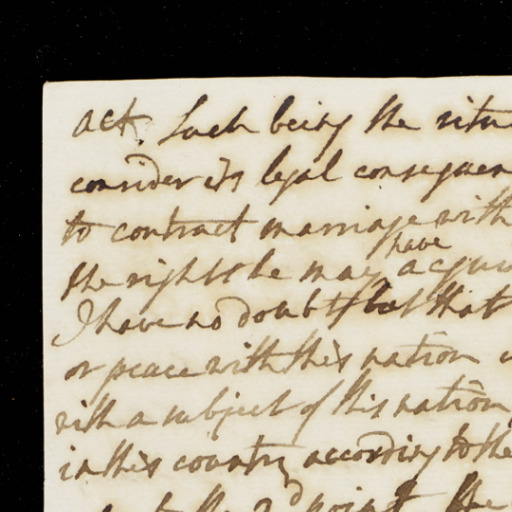 act. Such being the situ
consider its legal consequen
to contract marriage with
the rights he may have acqui
I have no doubt but that
or peace with this nation
with a subject of this nation
in this country according to the
2d point the